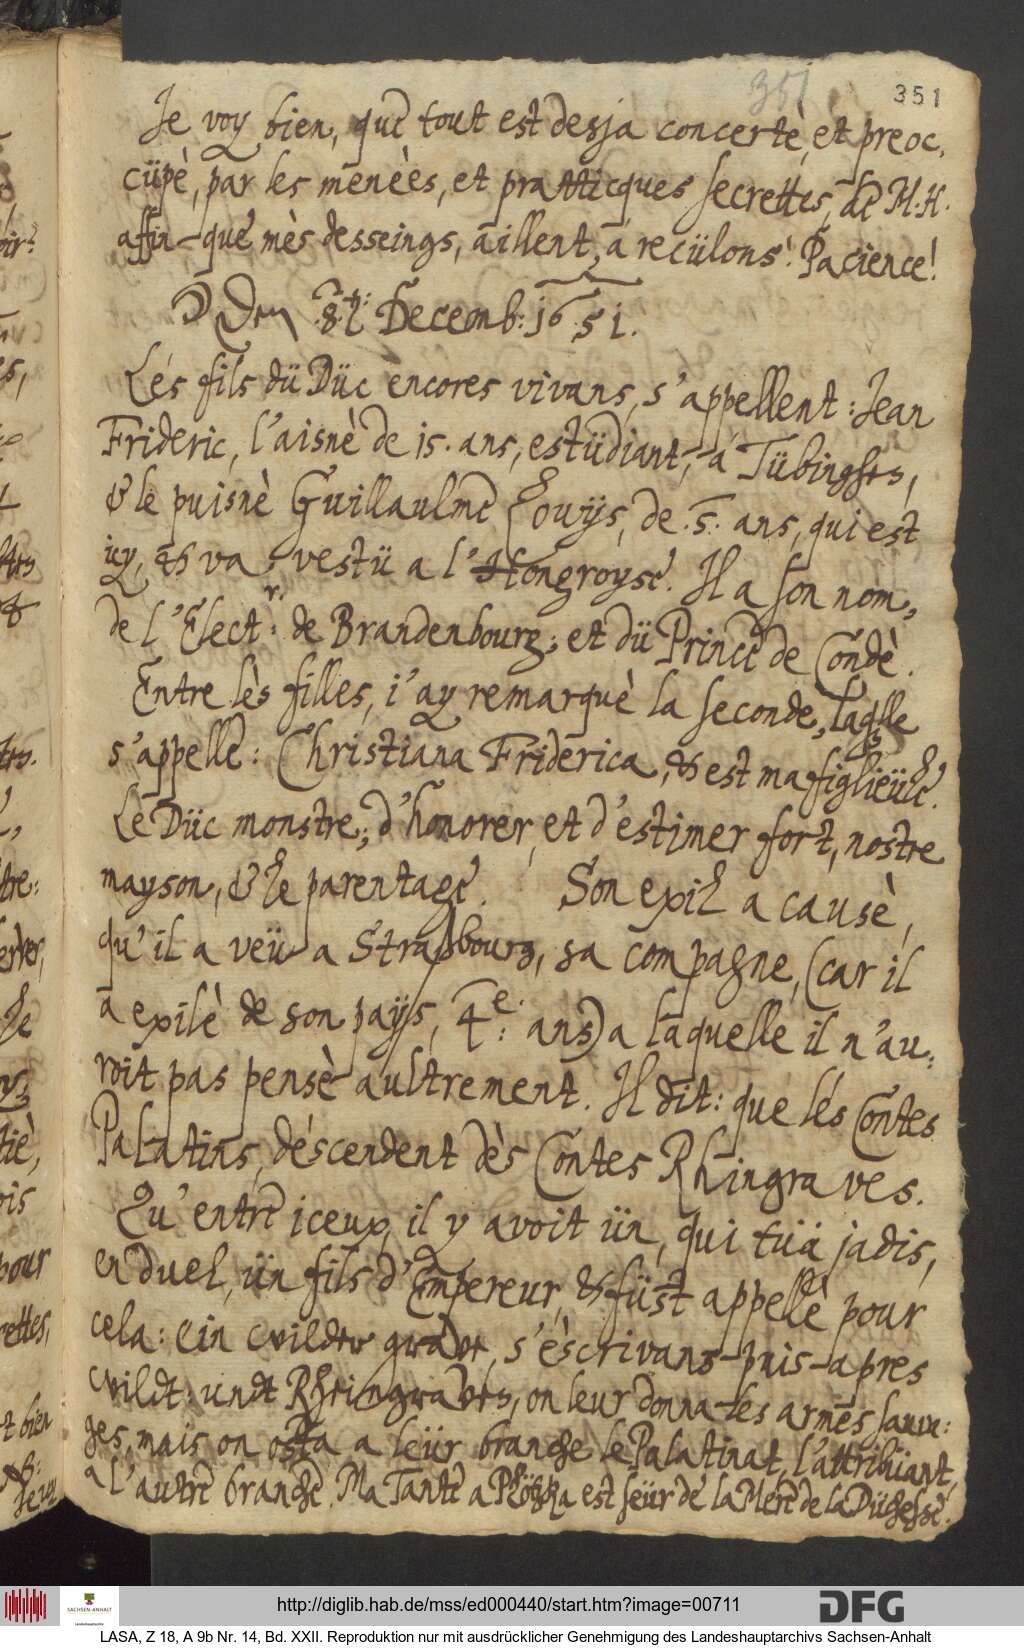 351
351
Je voy bien, que tout est desja concertè, et preoc,
cüpè, par les menèes, et pratticques secrettes, de M. H.
affin que mès desseings, aillent, a recülons! Pacience!
☽ Den 8.t: Decemb: 1651.
Lès fils dü Düc encores vivans, s'appellent: Jean
Frideric, l'aisnè de 15. ans, estüdiant, a Tübinghen,
& le puisnè Guillaulme Louys, de .5. ans, qui est
icy, & va vestü a l'Hongroyse. Il a son nom,
de l'Elect.r: de Brandenbourg; et dü Prince de Condè.
Entre lès filles, i'ay remarquè la seconde, laq͞lle
s'appelle: Christiana Friderica, & est ma figlieüle.
Le Düc monstre, d'honorer, et d'estimer fort, nostre
mayson, & le parentage. Son exil a causè,
qu'il a veü a Straßbourg, sa compagne, (car il
a exilè de son pays, 4.e: ans) a laquelle il n'au,
roit pas pensè aultrement. Il dit: que lés Contes
Palatins, déscendent dès Contes Rhingraves.
Qu'entre iceux, il y avoit ün, qui tüa jadis,
en duel, ün fils d'Empereur, & füst appellè pour
cela: ein wilder grave, s'èscrivans puis apres
wildt: undt Rheingraven, on leur donna les armes sauva:
ges, mais on osta a leür branche le Palatinat, l'attribüant,
a l'autre branche. Ma Tante a Plözka est seür de la Mere de la Düchesse.
http://diglib.hab.de/mss/ed000440/start.htm?image=00711
SACHSEN-ANHALT
DFG
LASA, Z 18, A 9b Nr. 14, Bd. XXII. Reproduktion nur mit ausdrücklicher Genehmigung des Landeshauptarchivs Sachsen-Anhalt